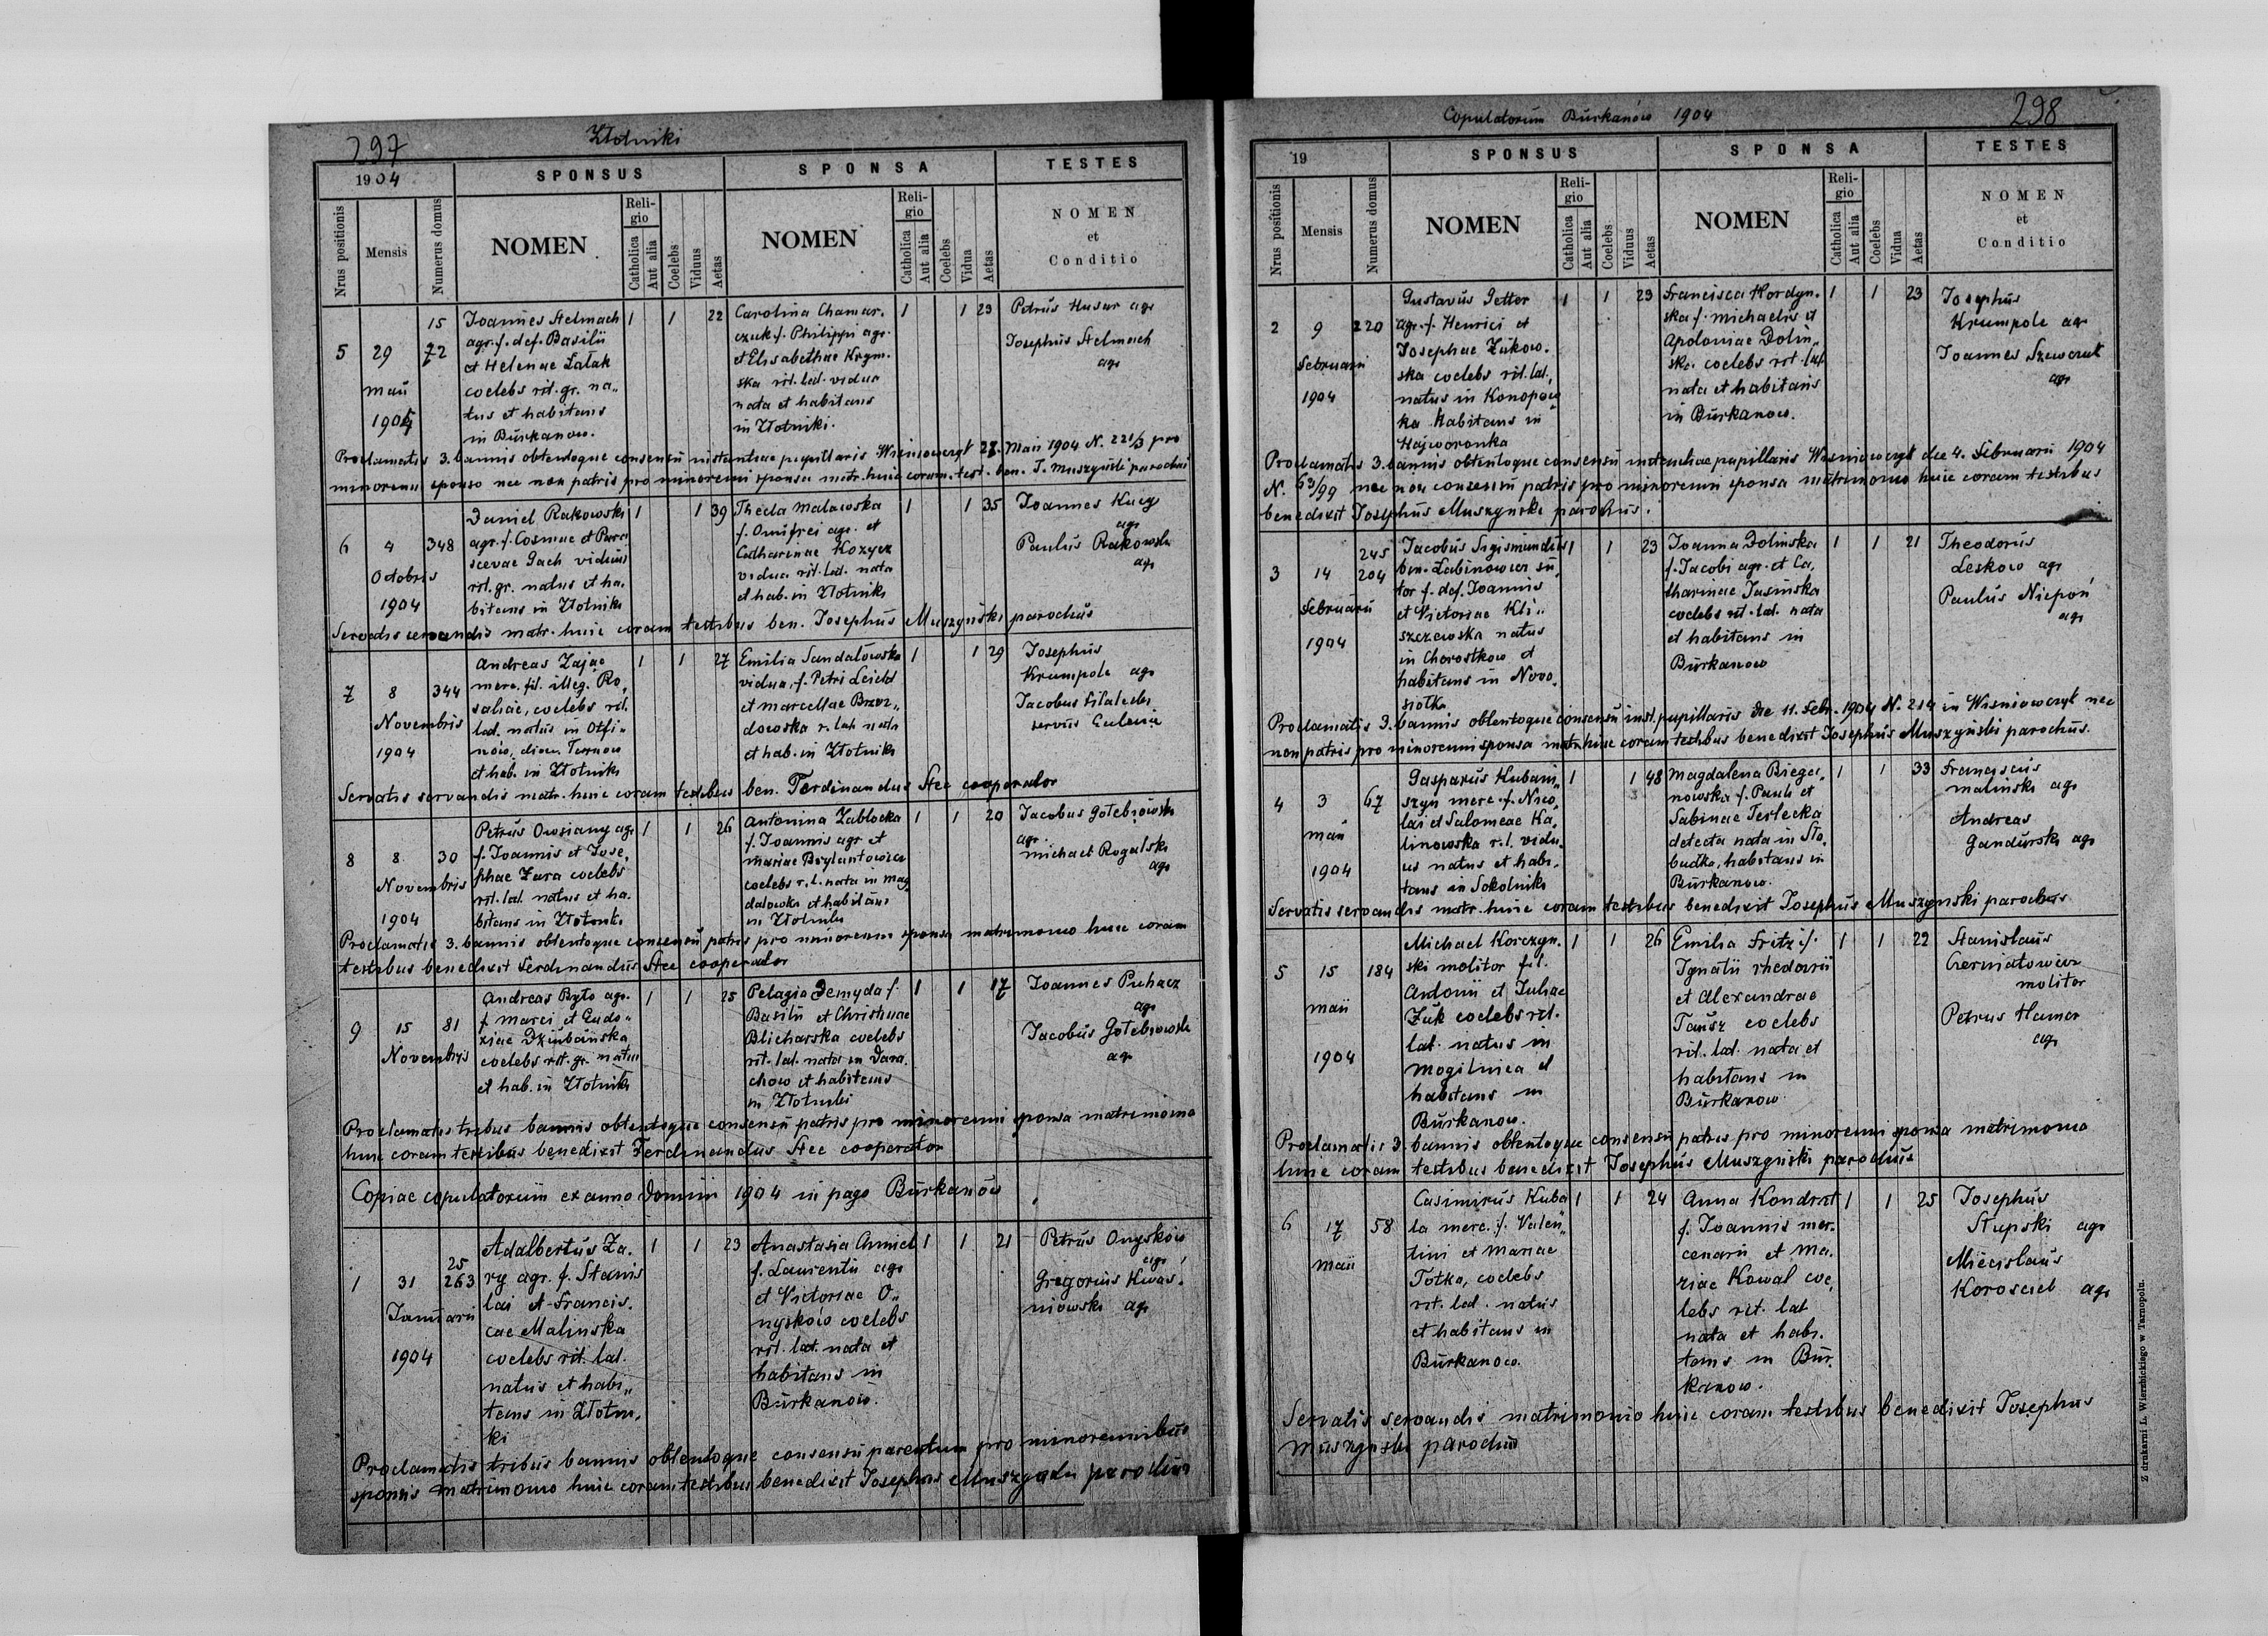 297
Złotniki
1904
SPONSUS
SPONSA
TESTES
Nrus positionis
Mensis
Numerus domus
NOMEN
Religio
Catholica
Aut alia
Coelebs
Viduus
Aetas
NOMEN
Religio
Catholica
Aut alia
Coelebs
Vidua
Aetas
NOMEN
et
Conditio
5
29
Maii
1904
15
72
Joannes Stelmach
agr. f. def. Basilii
et Helenae Łatak
coelebs rit. gr. na„
tus et habitans
in Burkanow.
1 1 22
Carolina Chamar.
czuk f. Philippi agr.
et Elisabethae Krym.
ska rit. lat. vidua
nata et habitans
in Złotniki.
1 1 23
Petrus Husar agr
Josephus Stelmach
agr
Proclamatis 3. bannis obtentoque consensu instantiae pupillaris Wisniowczyk 27. Maii 1904 N. 221/3 pro
minorenni sponso nec non patris pro minorenni sponsa matr. huic coram test. ben. J. Muszyński parochus
6
4
Octobris
1904
348
Daniel Rakowski
agr. f. Cosmae et Para
scevae Gach viduus
rit. gr. natus et ha.
bitans in Złotniki
1 1 39
Thecla Malawska
f. Onufrei agr. et
Catharinae Kozycz
vidua rit. lat. nata
et hab. in Złotniki
1 1 35
Joannes Kuzy
agr
Paulus Rakowski
agr
Servatis servandis matr. huic coram testibus ben. Josephus Muszyński parochus
7
8
Novembris
1904
344
Andreas Zając
merc. fil. illeg. Ro,
saliae, coelebs rit.
lat. natus in Otfi-
nów, dioec. Tarnow
et hab. in Złotniki
1 1 27
Emilia Sandałowska
vidua, f. Petri Leicht
et Marcellae Brzoz„
dowska r. lat. nata
et hab. in Złotniki
1 1 29
Josephus
Krumpole agr
Jacobus
servus
Servatis servandis matr. huic coram testibus ben. Ferdinandus Stec cooperator
8
8
Novembris
1904
30
Petrus Owsiany agr
f. Joannis et Jose,
phae Zara coelebs
rit. lat. natus et ha.
bitans in Złotniki
1 1 26
Antonina Zabłocka
f. Joannis agr et
Mariae Brylantowicz
coelebs r. l. nata in Mag
dalowka et habitans
in Złotniki
1 1 20
Jacobus Gołebiowski
agr.
Michael Rogalski
agr
Proclamatis 3. bannis obtentoque consensu patris pro minorenni sponsa matrimonio huic coram
testibus benedixit Ferdinandus Stec cooperator
9
15
Novembris
81
Andreas Ryto agr.
f Marci et Eudo„
xiae Dziubańska
coelebs rit. gr. natus
et hab. in Złotniki
1 1 25
Pelagia Demyda f.
Basilii et Christinae
Blicharska coelebs
rit. lat. nata in Dara.
chow et habitans
in Złotniki
1 1 17
Joannes Puhacz
agr
Jacobus Gołebiowski
agr
Proclamatis tribus bannis obtentoque consensu patris pro minorenni sponsa matrimonio
huic coram testibus benedixit Ferdinandus Stec cooperator
Copiae copulatorum ex anno Domini 1904 in pago Burkanów
1
31
Januarii
1904
25
263
Adalbertus Za.
ry agr. f. Stanis
lai et Francis.
cae Malinska
coelebs rit. lat.
natus et habi„
tans in Złotni,
ki
1 1 23
Anastasia Chmiel
f. Laurentii agr
et Victoriae O„
nyskow coelebs
rit. lat. nata et
habitans in
Burkanow.
1 1 21
Petrus Onyskow
agr
Gregorius Kwas.
niowski agr
Proclamatis tribus bannis obtentoque consensu parentum pro minorennibus
sponsis matrimonio huic coram testibus benedixit Josephus Muszyński parochus
Copulatorum Burkanów 1904
298
19
SPONSUS
SPONSA
TESTES
Nrus positionis
Mensis
Numerus domus
NOMEN
Religio
Catholica
Aut alia
Coelebs
Viduus
Aetas
NOMEN
Religio
Catholica
Aut alia
Coelebs
Vidua
Aetas
NOMEN
et
Conditio
2
9
Februarii
1904
220
Gustavus Getter
agr. f. Henrici et
Josephae Zukow.
ska coelebs rit. lat.
natus in Konopow
ka habitans in
Hajworonka
1 1 23
Francisca Hordyn.
ska f. Michaelis et
Apoloniae Dolin„
ska coelebs rit. lat
nata et habitans
in Burkanow.
1 1 23
Josephus
Krumpole agr
Joannes Szewczuk
agr
Proclamatis 3. bannis obtentoque consensu instantiae pupillaris Wisniowczyk die 4. Februarii 1904
N. 63/99 nec non consensu patris pro minorenni sponsa matrimonio huic coram testibus
benedixit Josephus Muszynski parochus.
3
14
Februarii
1904
245
204
Jacobus Sigismundus
bin. Łabinowicz su
tor f. def. Joannis
et Victoriae Kli„
szczewska natus
in Chorostkow et
habitans in Nowo.
siołka
1 1 23
Joanna Dolinska
f. Jacobi agr. et Ca,
tharinae Jasinska
coelebs rit. lat. nata
et habitans in
Burkanow
1 1 21
Theodorus
Leskow agr
Paulus Niepoń
agr
Proclamatis 3. bannis obtentoque consensu inst. pupillaris die 11. Febr. 1904 N. 214 in Wisniowczyk nec
non patris pro minorenni sponsa matr. huic coram testibus benedixit Josephus Muszyński parochus.
4
3
Maii
1904
67
Gasparus Kubani„
szyn merc. f. Nico,
lai et Salomeae Ka,
linowska r. l. vidu.
us natus et habi.
tans in Sokolniki
1 1 48
Magdalena Biega,
nowska f. Pauli et
Sabinae Terlecka
detecta nata in Sło
budka, habitans in
Burkanow.
1 1 33
Franciscus
Malinski agr
Andreas
Gandurski agr
Servatis servandis matr. huic coram testibus benedixit Josephus Muszynski parochus
5
15
Maii
1904
184
Michael Korczyn.
ski molitor fil.
Antonii et Juliae
Żuk coelebs rit.
lat. natus in
Mogilnica et
habitans in
Burkanow.
1 1 26
Emilia Fritz f.
Ignatii rhedarii
et Alexandrae
Tausz coelebs
rit. lat. nata et
habitans in
Burkanow
1 1 22
Stanislaus
Czerniatowicz
molitor
Petrus Hamar
agr
Proclamatis 3. bannis obtentoque consensu patris pro minorenni sponsa matrimonio
huic coram testibus benedixit Josephus Muszyński parochus
6
17
Maii
58
Casimirus Kuba
la merc. f. Valen„
tini et Mariae
Totka, coelebs
rit. lat. natus
et habitans in
Burkanow.
1 1 24
Anna Kondrat
f. Joannis mer.
cenarii et Ma.
riae Kowal coe,
lebs rit. lat
nata et habi.
tans in Bur.
kanow.
1 1 25
Josephus
Słupski agr
Miecislaus
Korosciel agr
Servatis servandis matrimonio huic coram testibus benedixit Josephus
Muszyński parochus
Z drukarni L. Wierzbickiego w Tarnopolu.